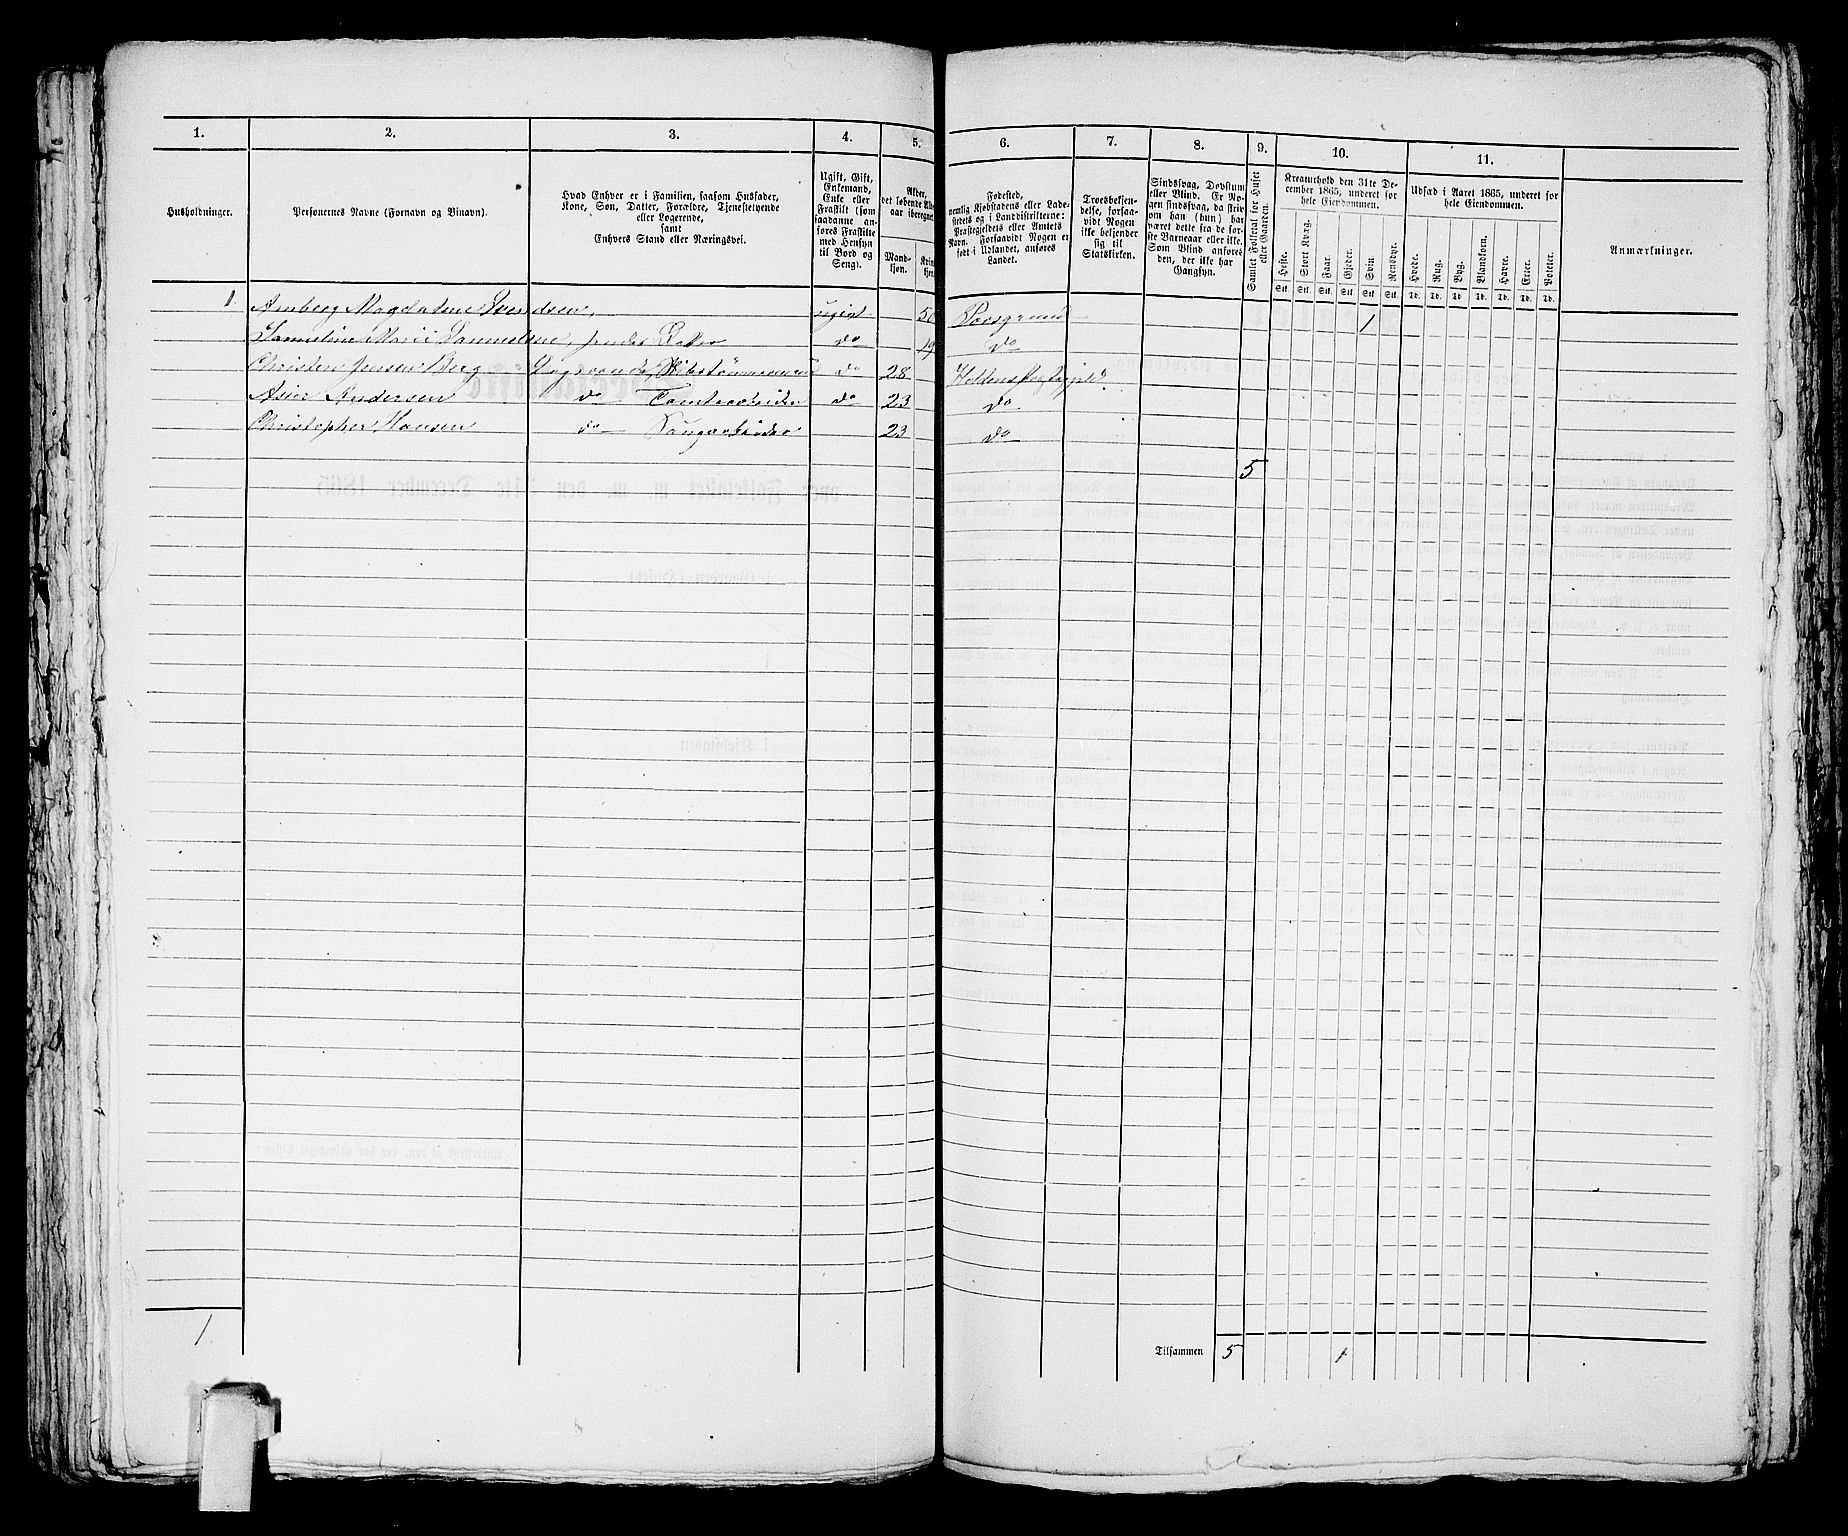 1. 2. 3. 4. 5. 6. 7. 8. 9. 10. 11.
Husholdninger.
Personernes Navne (Fornavn og Binavn).
Hvad Enhver er i Familien, saasom Husfader,
Kone, Søn, Datter, Forældre, Tjenestetyende
eller Logerende,
samt
Enhvers Stand eller Næringsvei.
Ugift, Gift,
Enkemand,
Enke eller
Fraskilt (som
saadanne an-
føres Fraskilte
med Hensyn
til Bord og
Seng).
Alder,
det løbende Alders-
aar iberegnet.
Mand-
kjøn.
Kvin
kjøn.
Fødested,
nemlig Kjøbstadens eller Lade-
stedets og i Landdistrikterne:
Præstegjeldets eller Amtets
Navn. Forsaavidt Nogen er
født i Udlandet, anføres
Landet.
Troesbekjen-
delse, forsaa-
vidt Nogen
ikke bekjender
sig til
Statskirken.
Sindssvag, Døvstum
eller Blind. Er No-
gen sindssvag, da skriv
om han (hun) har
været dette fra de for-
ste Barneaar eller ikke.
Som Blind anføres
den, der ikke har
Gangsyn.
Samlet Folketal for Huset
eller Gaarden.
Kreaturhold den 31te De-
cember 1865, underet for
hele Eiendommen.
Heste. Stort Kvæg. Faar. Gjeder. Svin. Rensdyr.
Stk. Stk. Stk. Stk. Stk. Stk.
Udsæd i Aaret 1865, underet for
hele Eiendommen.
Hvede. Rug. Byg. Blandkorn. Havre. Erter. Poteter.
Td. Td. Td. Td. Td. Td. Td.
Anmærkninger.
1. Magdalene Svendsen, ugivt 50 Porsgrund 1
Samueline Marie Samuelsen, do 19 do
Christen Jensen Berg Logerende, do 28
Andersen do Tomtearbeider do 23 do
Christopher Hansen do 23 do
5
1
Tilsammen 5 1